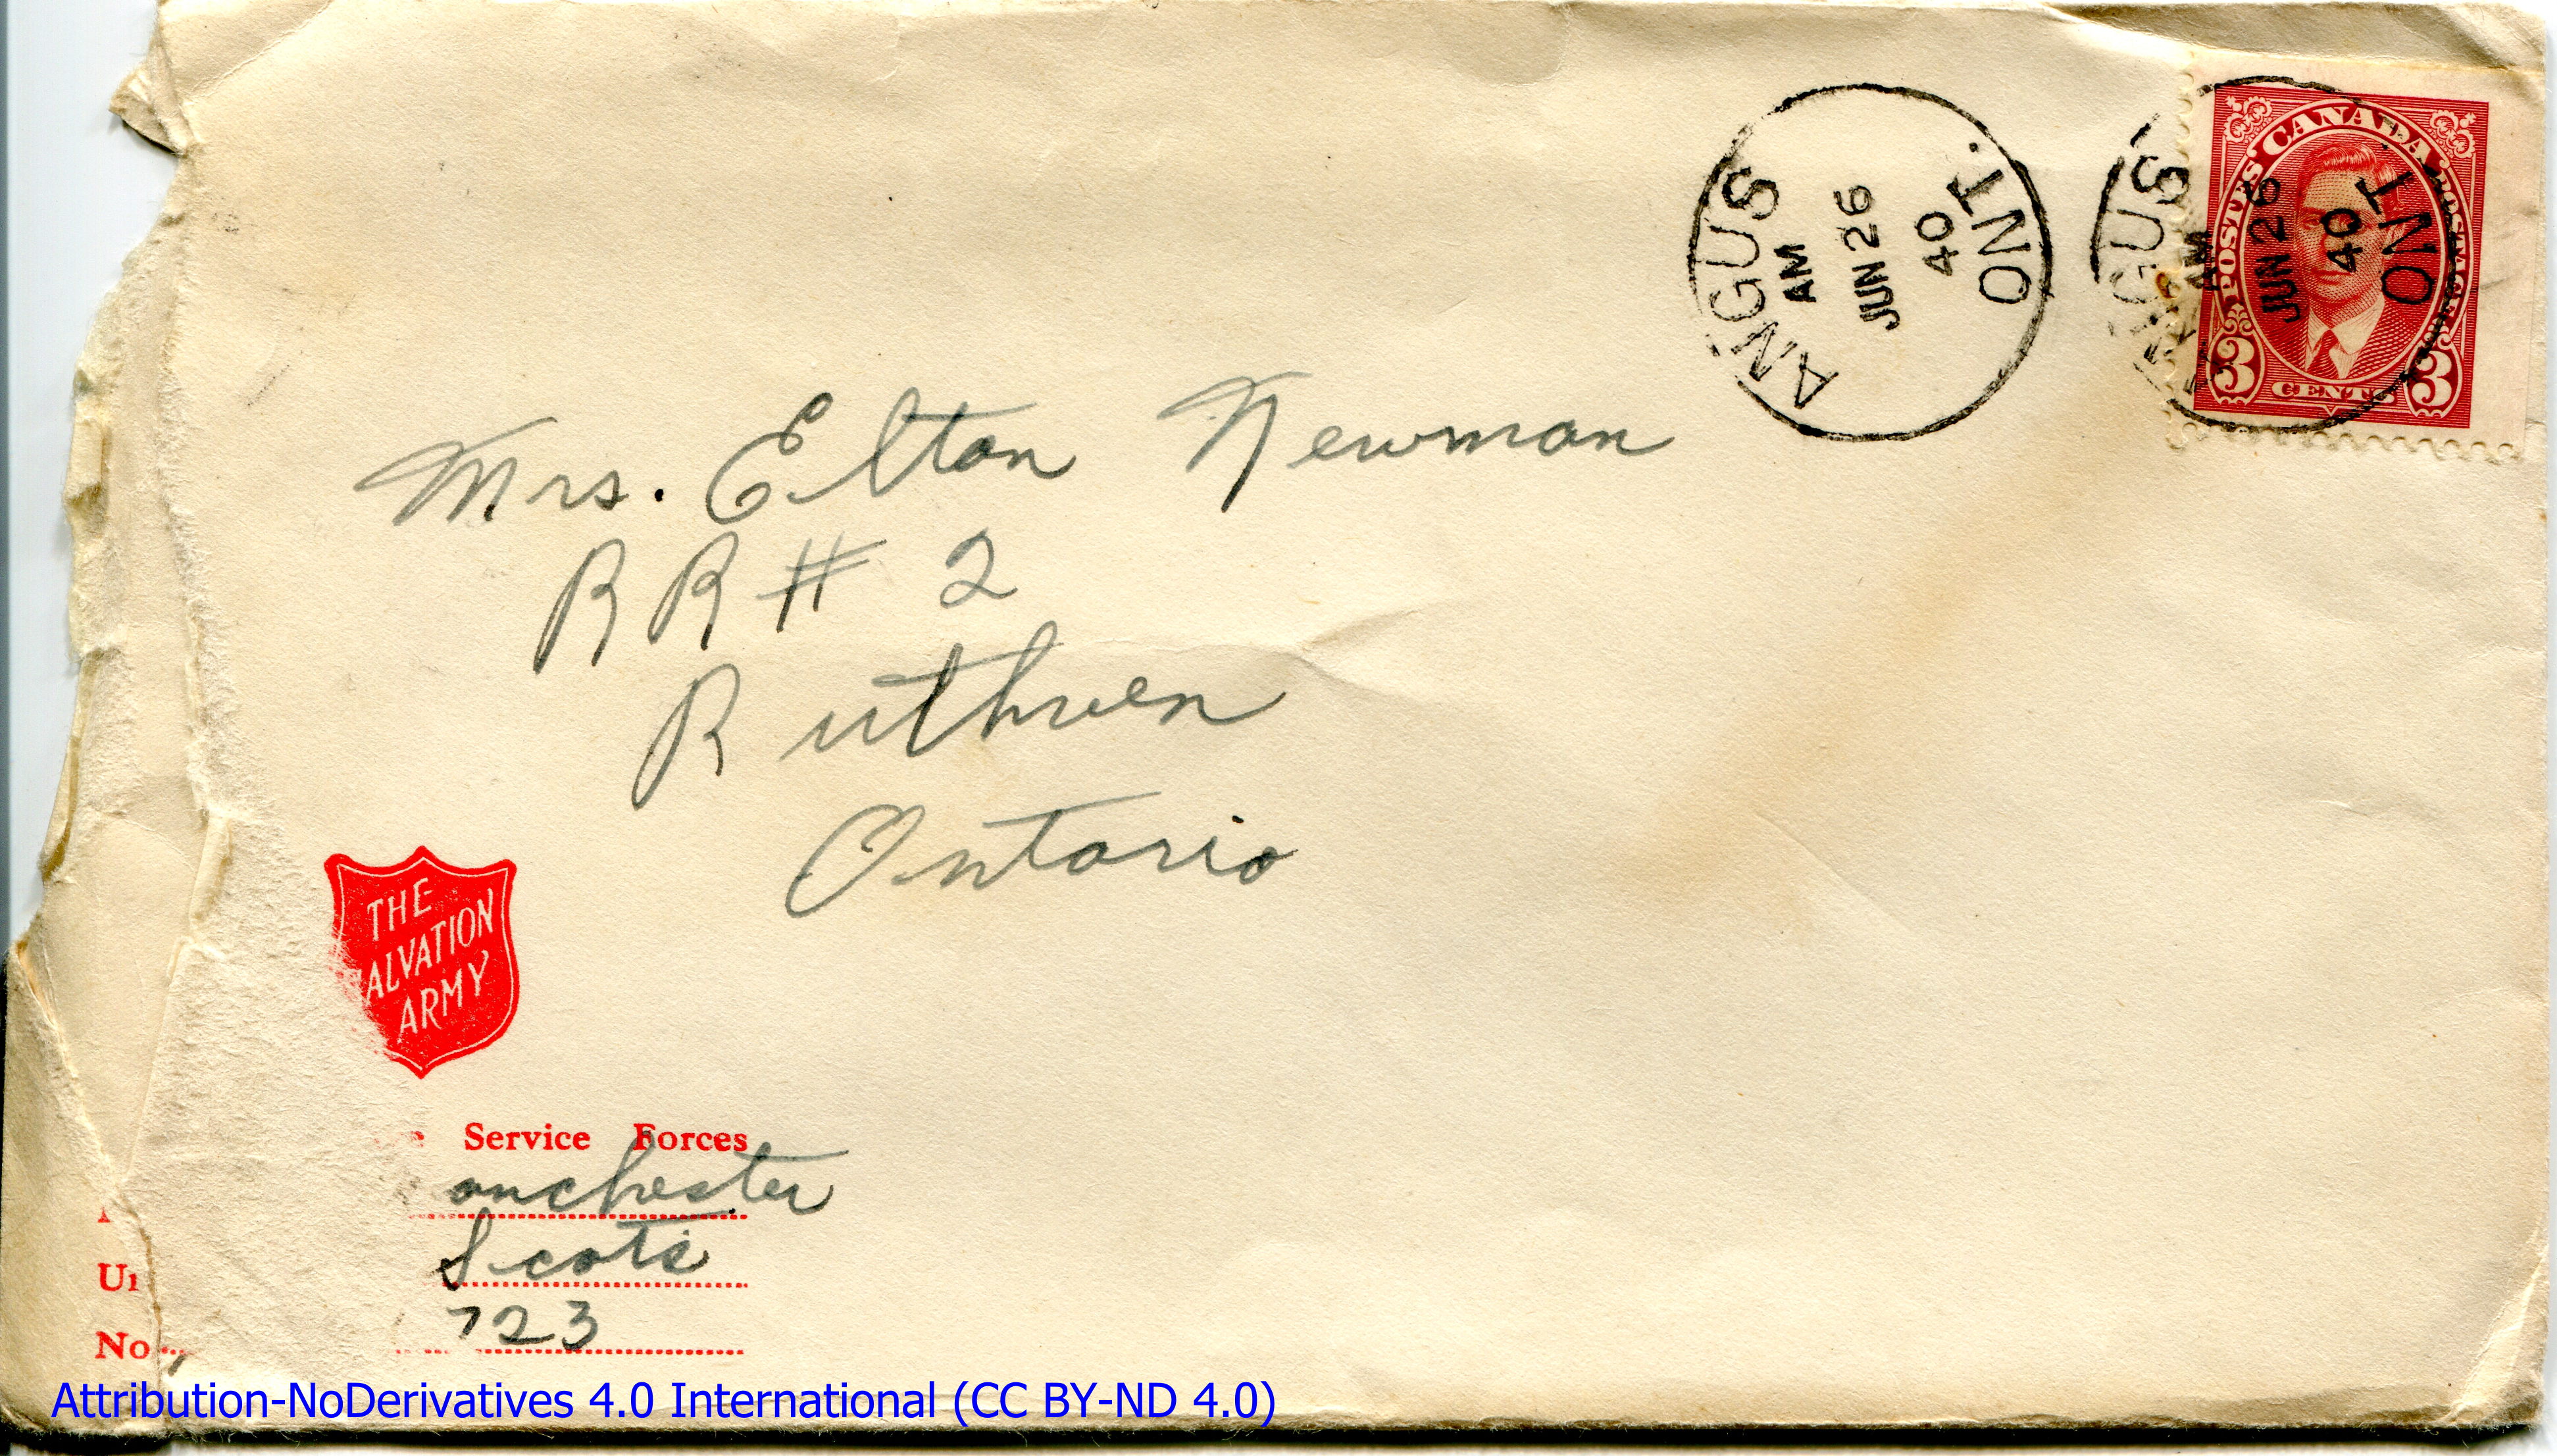 ANGUS
AM
JUN 26
40
ONT.
ANGUS
AM
JUN 26
40
ONT
CANADA
POSTES POSTAGE
3 CENTS 3
Mrs. Elton Newman
RR # 2
Ruthven
Ontario
THE
ALVATION
ARMY
Service Forces
onchester
Scots
No 723
Attribution-NoDerivatives 4.0 International (CC BY-ND 4.0)